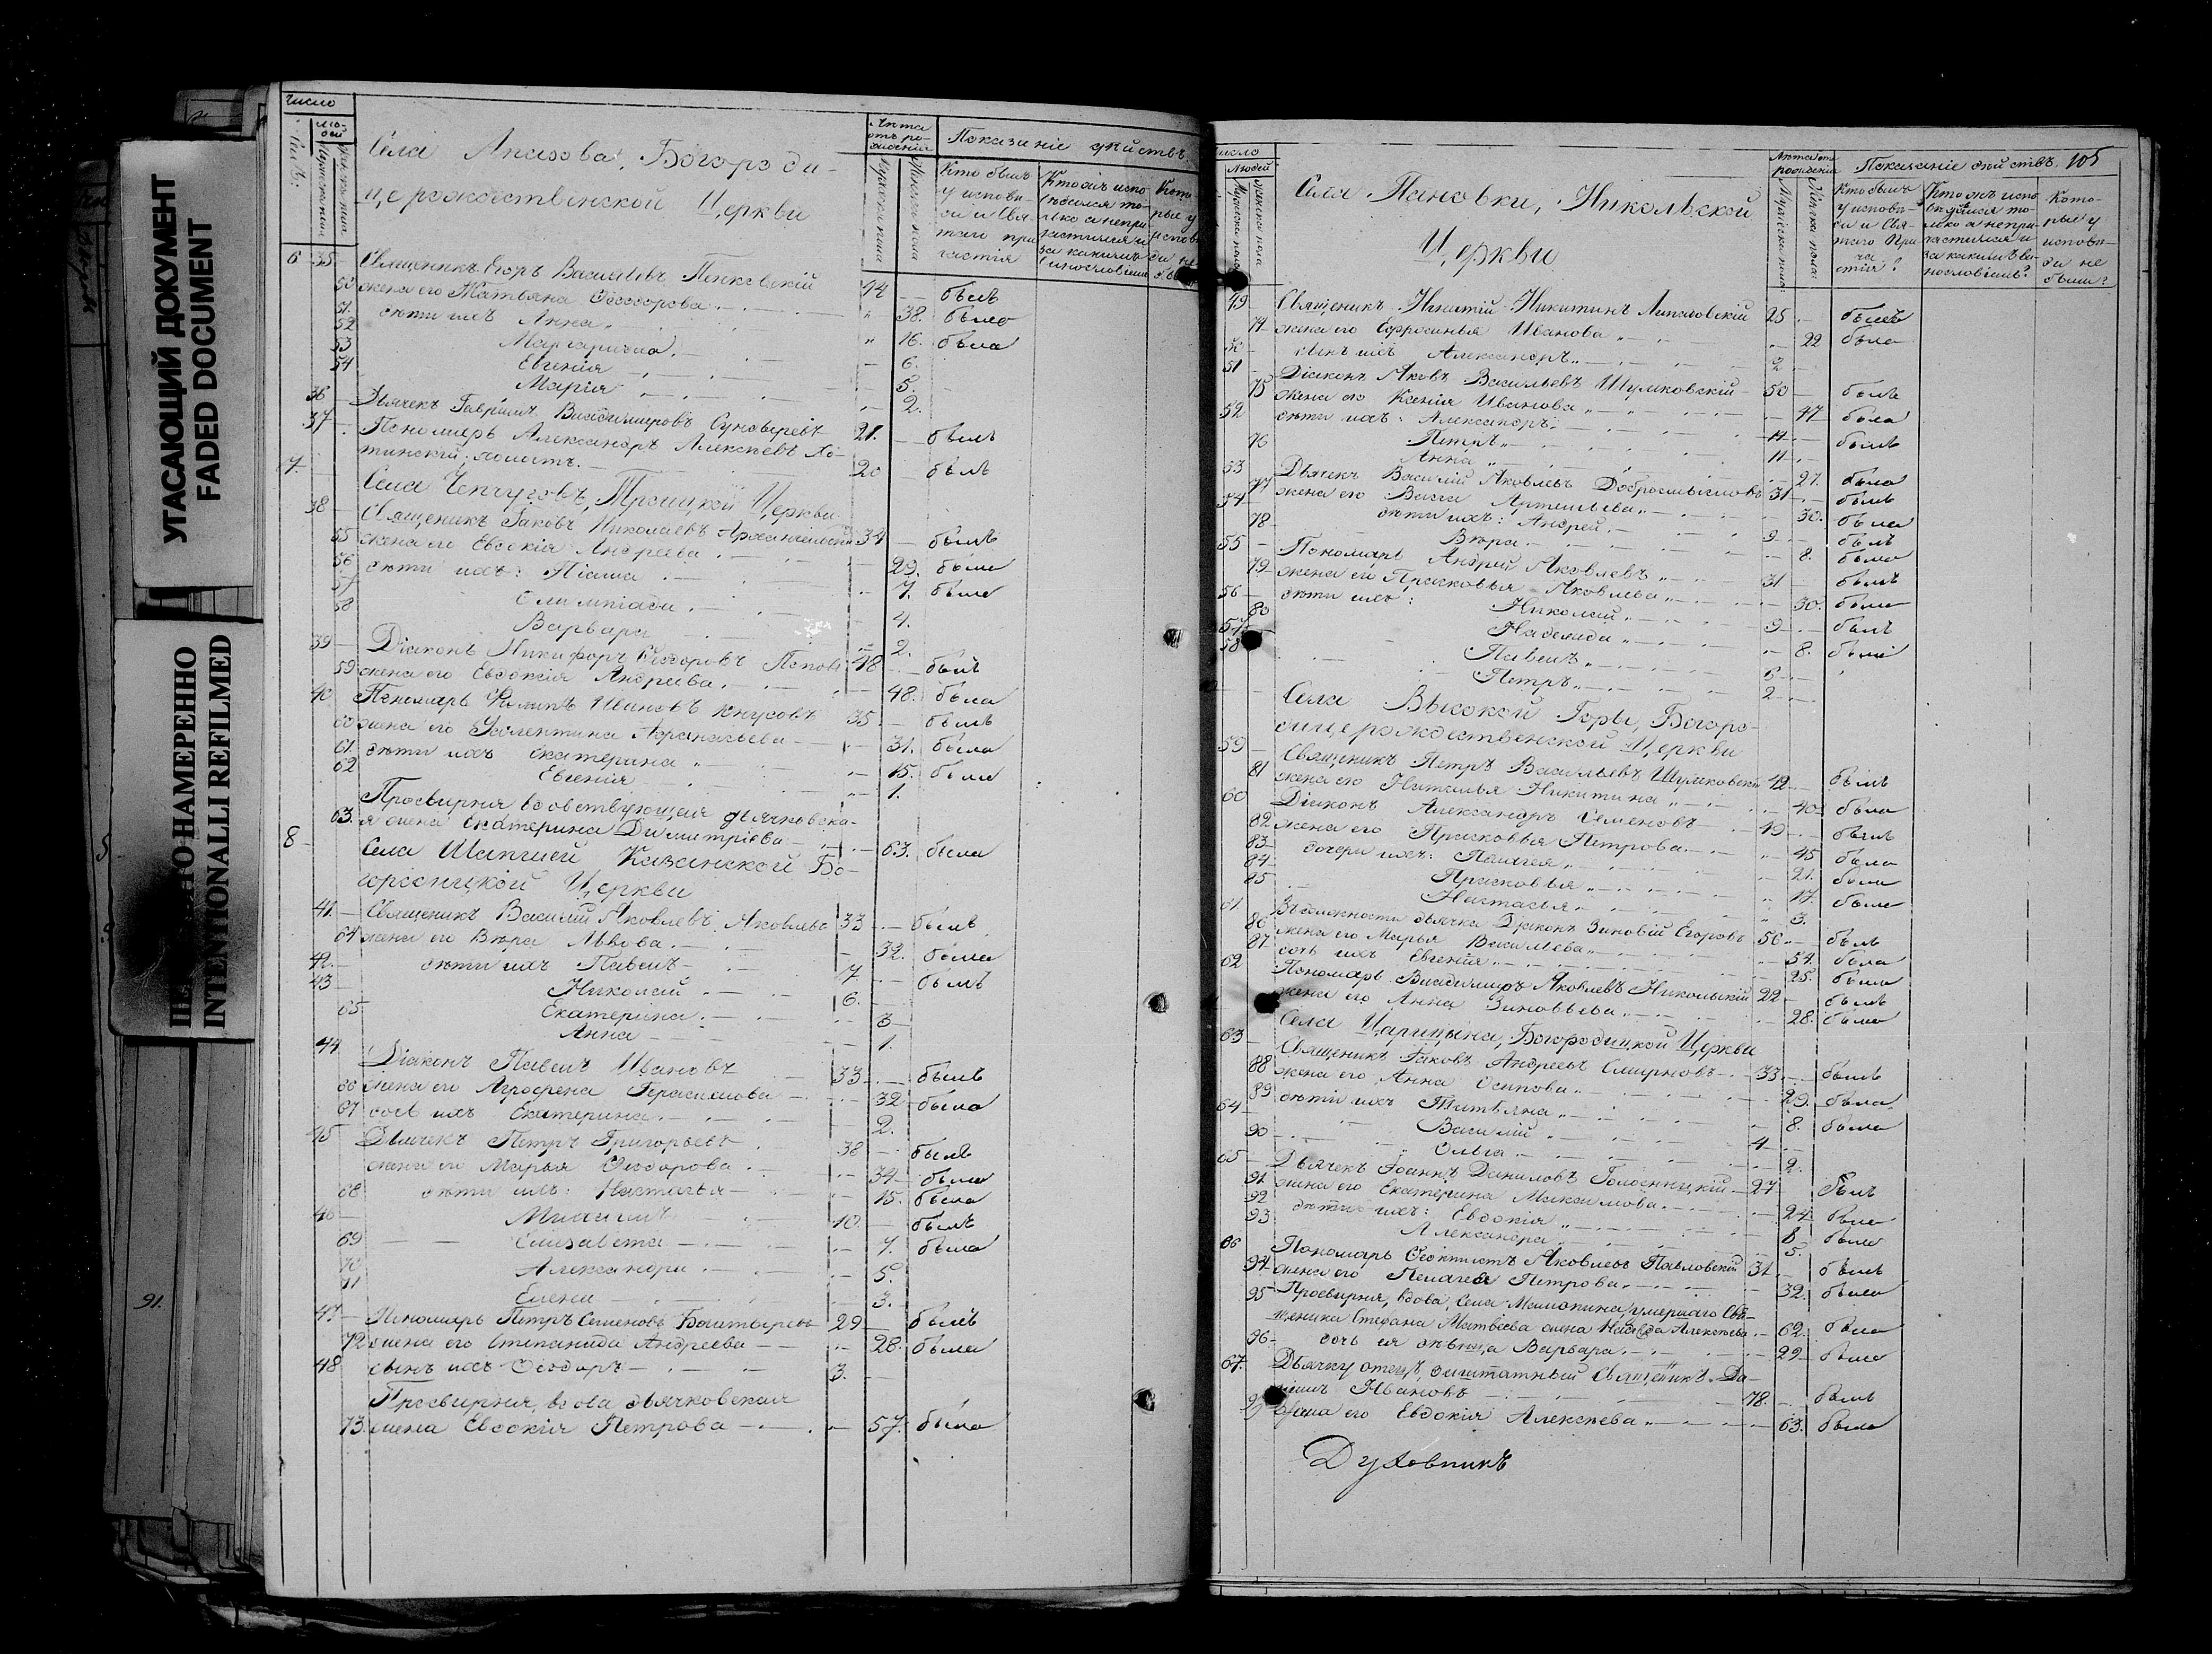 УГАСАЮЩИЙ ДОКУМЕНТ
FADED DOCUMENT
НАМЕРЕННО
INTENTIONALLI REFILMED
91.
Число
Лѣта отъ рожденія
Показаніе дѣйствъ
Села Апазова, Богороди-
церождественской Церкви
Кто былъ у исповѣди и Свя-
таго при-
частія
6 35 Священникъ Егоръ Васильевъ 44 былъ
50 жена его Татьяна Ѳеодорова 38. была
51. дѣти ихъ Анна 16. была
52 Маргарита 6.
53 Евгенія 5.
54 Марія 2.
36 Дьячекъ Гавріилъ Владимировъ 21. былъ
37 Пономарь Александръ Алексѣевъ Хо-
тинскій, холостъ. 20 былъ
7. Села Чепчуговъ, Троицкой Церкви
38 Священникъ Іаковъ Николаевъ Архангельскій 34 былъ
55 жена его Евдокія Андреева 29. была
56 дѣти ихъ: 7. была
57 Олимпіада 4.
58 Варвара 2.
39 Діаконъ Никифоръ Ѳеодоровъ Поповъ 48 былъ
59 жена его Евдокія Андреева 48. была
40 Пономарь Филипъ Ивановъ 35 былъ
60 жена его Валентина Аѳанасьева 31. была
61. дѣти ихъ Екатерина 15. была
62 Евгенія 1.
Просвирня вдовствующая дьячковска-
63. я жена Екатерина Димитріева 63. была
8 Села Шапшей Казанской Бо-
городицкой Церкви
41. Священникъ Василій Яковлевъ Яковлевъ 33 былъ
64 жена его Вѣра Львова 32. была
42. дѣти ихъ Павелъ 7 былъ
43 Николай 6.
65 Екатерина 3
Анна 1.
44 Діаконъ Павелъ Ивановъ 33 былъ
66 жена его Агрофена Герасимова 32 была
67 дочь ихъ Екатерина 2.
45 Дьячекъ Петръ Григорьевъ 38 былъ
жена его Марья Ѳеодорова 34 была
68 дѣти ихъ: Настасья 15. была
46 Михаилъ 10. былъ
69 Елизавета 7. была
70 Александра 5.
71 Елена 3.
47 Пономарь Петръ Семеновъ Богатыревъ 29 былъ
72 жена его Степанида Андреева 28. была
48 сынъ ихъ Ѳеодоръ 3.
Просвирня, вдова дьячковская
73. жена Евдокія Петрова 57. была
Число
Людей
Лѣта отъ рожденія
Показаніе дѣйствъ 105
Мужеска пола
Женска пола
Кто былъ у исповѣди и Святаго Причастія?
Которые у исповѣди не были?
Села Пановки, Никольской
Церкви
49 Священникъ Никитинъ 25 былъ
74 жена его Ефросинья Иванова 22 была
50 сынъ ихъ Александръ 2
51 Діаконъ Яковъ Васильевъ Шумковскій 50 былъ
75 жена его Ксенія Иванова 47 была
52 дѣти ихъ: Александръ 14 былъ
Петръ 11
76 Анна 21. была
53 Дьячекъ Василій Яковлевъ Добросмысловъ 31 былъ
77 жена его Васса Артемьева 30. была
54 дѣти ихъ: Андрей 9 былъ
78 Вѣра 8. была
55 Пономарь Андрей Яковлевъ 31 былъ
79 жена его Прасковья Яковлева 30. была
56 дѣти ихъ: Николай 9 былъ
80 Надежда 8. была
57 Павелъ 6
58 Петръ 2
Села Высокой Горы, Богоро-
дицерождественской Церкви
59 Священникъ Петръ Васильевъ Шумковскій 42 былъ
81 жена его Наталья Никитина 40 была
60 Діаконъ Александръ Семеновъ 49 былъ
82 жена его Прасковья Петрова 45 была
83 дочери ихъ: Пелагея 21. была
84 Прасковья 17. была
85 Настасья 3.
61 Въ должности дьячка Діаконъ Зиновій Егоровъ 56 былъ
86 жена его Марья Васильева 54. была
87 дочь ихъ Евгенія 25. была
62 Пономарь Владимиръ Яковлевъ Никольскій 22 былъ
жена его Анна Зиновьева 28. была
Села Царицына, Богородицкой Церкви
63 Священникъ Іаковъ Андреевъ Смирновъ 33 былъ
88 жена его Анна Осипова 29. была
89 дѣти ихъ Татьяна 8. была
64 Василій 4
90 Ольга 2.
65 Дьячекъ Іоаннъ Даниловъ 27 былъ
91 жена его Екатерина Максимова 24 была
92 дѣти ихъ: Евдокія 8 была
93 Александра 5.
66 Пономарь Ѳеоктистъ Яковлевъ Павловскій 31 былъ
94 жена его Пелагея Петрова 32. была
95 Просвирня, вдова, Села Мамонина умершаго Свя-
щеника Стефана Матвѣева жена Алексѣева 62. была
96 дочь ея дѣвица Варвара 29 была
67. Дьячку отецъ, заштатный Священникъ Да-
ніилъ Ивановъ 78. былъ
97 жена его Евдокія Алексѣева 63. была
Духовникъ